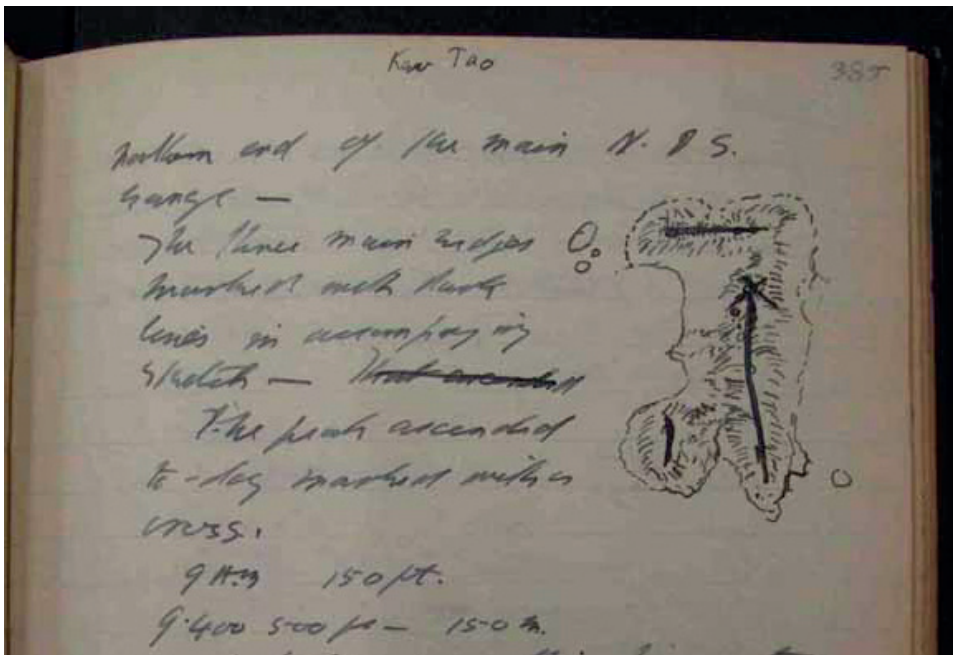 Kaw Tao
385
northern end of the main N. & S.
range —
The three main ridges
marked with dark
lines in accompanying
sketch — That ascended
The peak ascended
to-day marked with a
cross.
9 A.m 150 ft.
9.400 500 ft — 150 m.